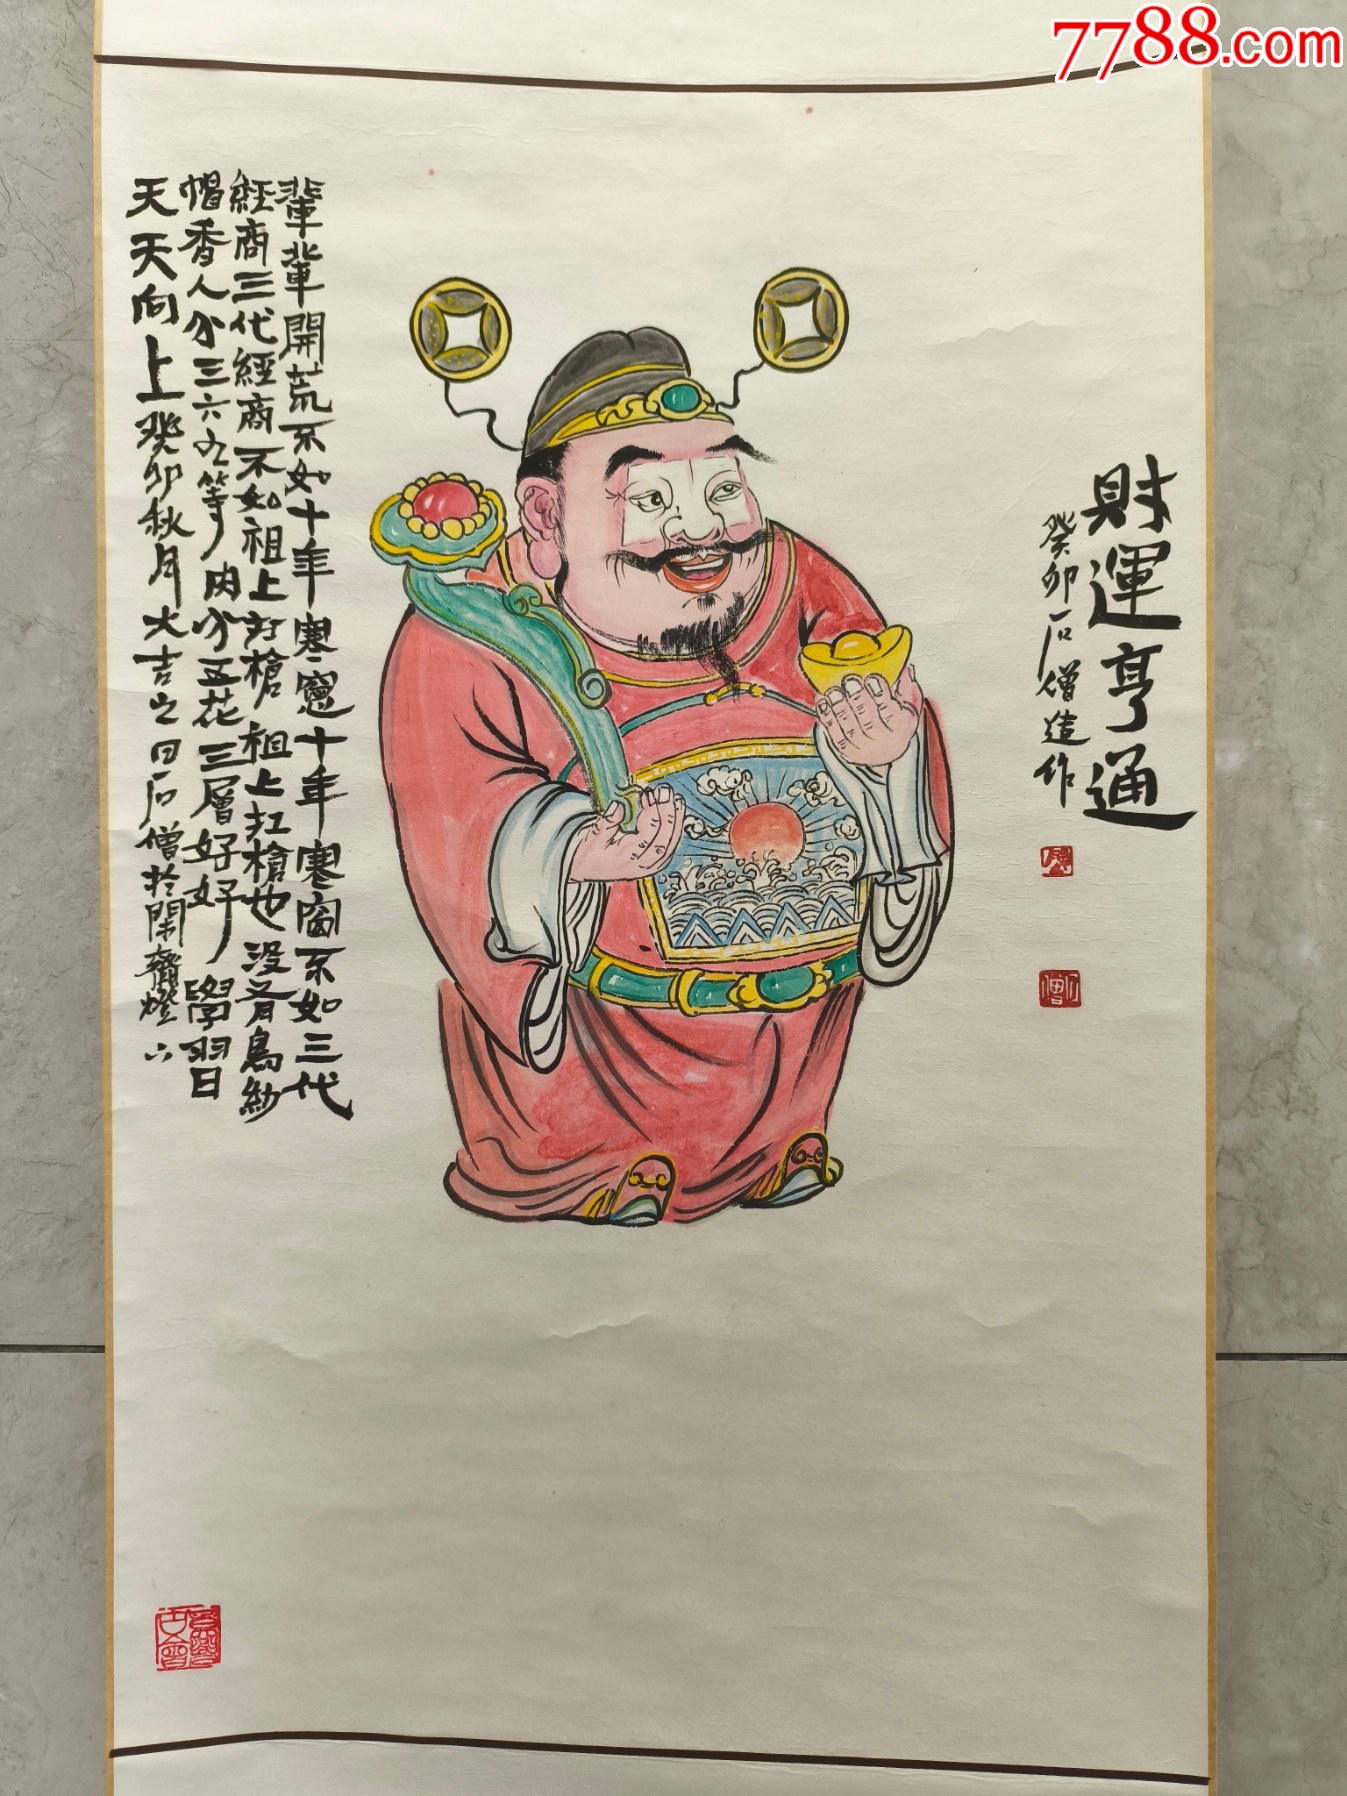 7788.com
財運亨通
癸卯石僧造作
輩輩開荒不如十年寒窓十年寒窗不如三代
經商三代經商不如祖上扛槍祖上扛槍也没有烏紗
帽香人分三六九等肉分五花三層好好學習
天天向上癸卯秋月大吉之日石僧於閑齋燈下